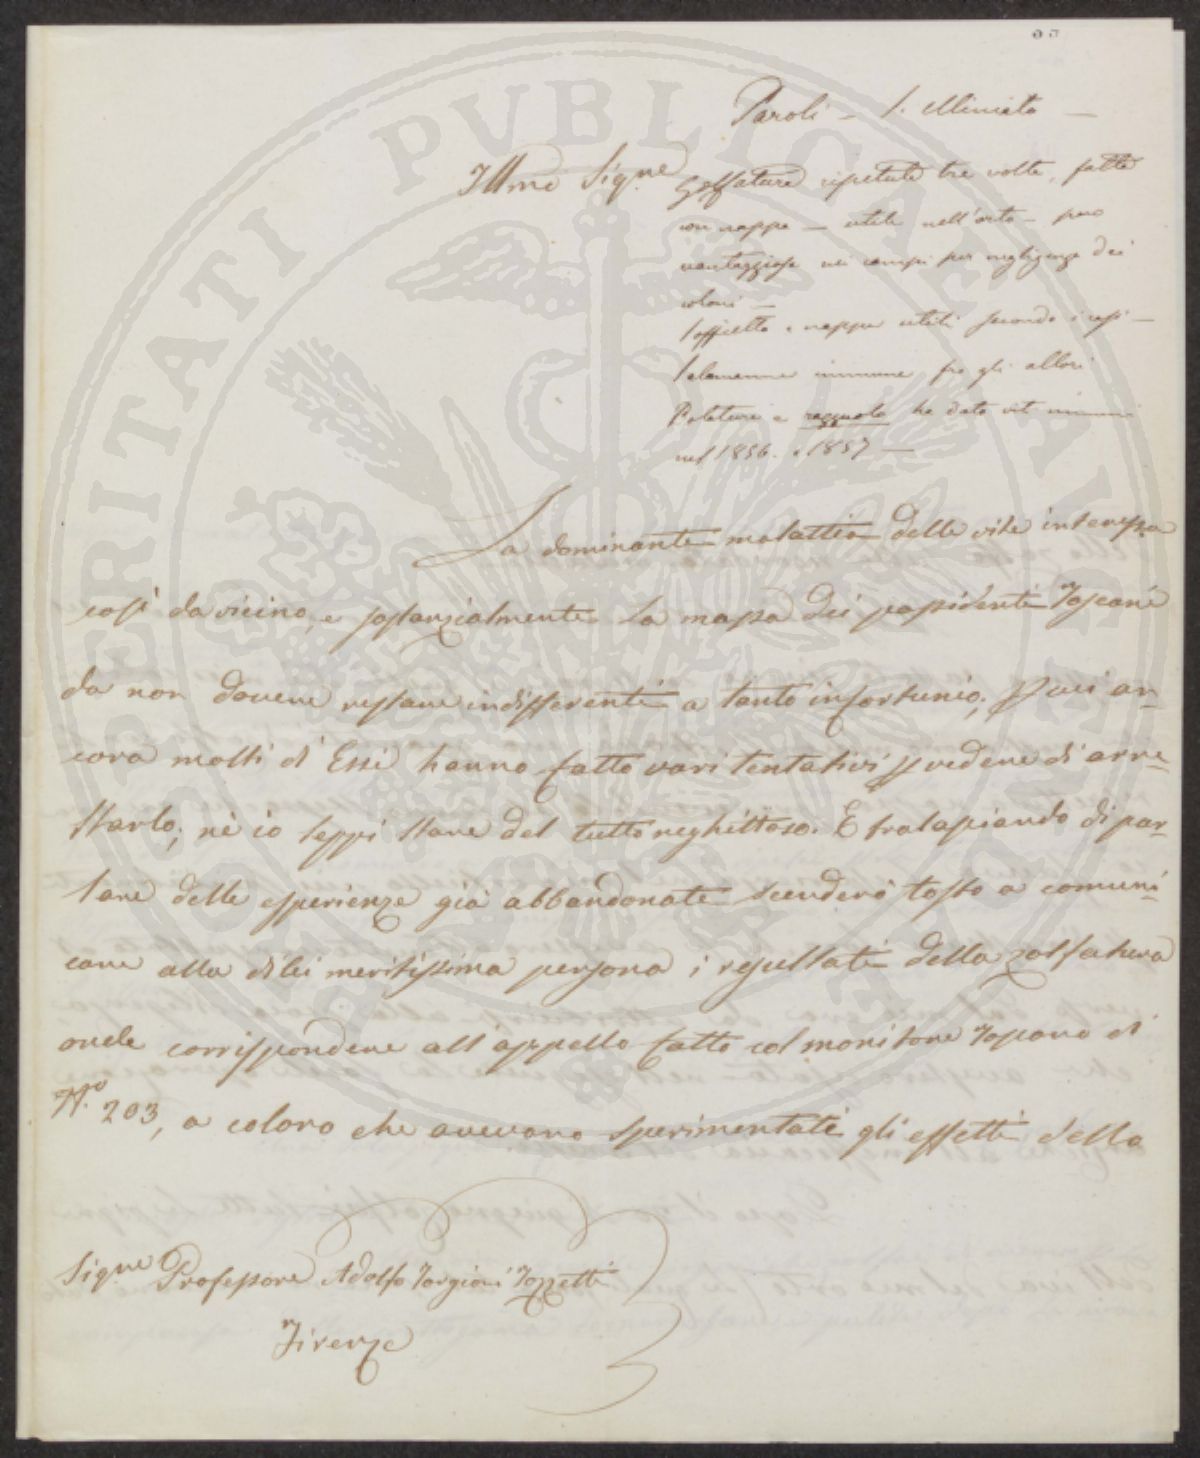 Paroli - S. Miniato -
Ill.mo Sig.re
Solfature ripetute tre volte, fatte
con nappa - utili nell'orto - poco
vantaggiose nei campi per negligenza dei
coloni -
Soffietto e nappa utili secondo i casi -
Salamanna immune fra gli allori
Potatura a ragguolo ha dato viti immuni
nel 1856. e 1857 -
La dominante malattia delle vite interessa
così da vicino, e sostanzialmente la massa dei possidenti Toscani
da non dovere restare indifferenti a tanto infortunio; Quei an-
cora molti di Essi hanno fatto vari tentativi p vedere di arre-
starlo; nè io seppi stare del tutto neghittoso. E tralasciando di par-
lare delle esperienze già abbandonate scenderò tosto a comuni-
care alla di lei meritissima persona i resultati della zolfatura
onde corrispondere all'appello fatto col monitore Toscano di
N.o 203, a coloro che avevano sperimentati gli effetti della
Sig.re Professore Adolfo Targioni Tozzetti
Firenze